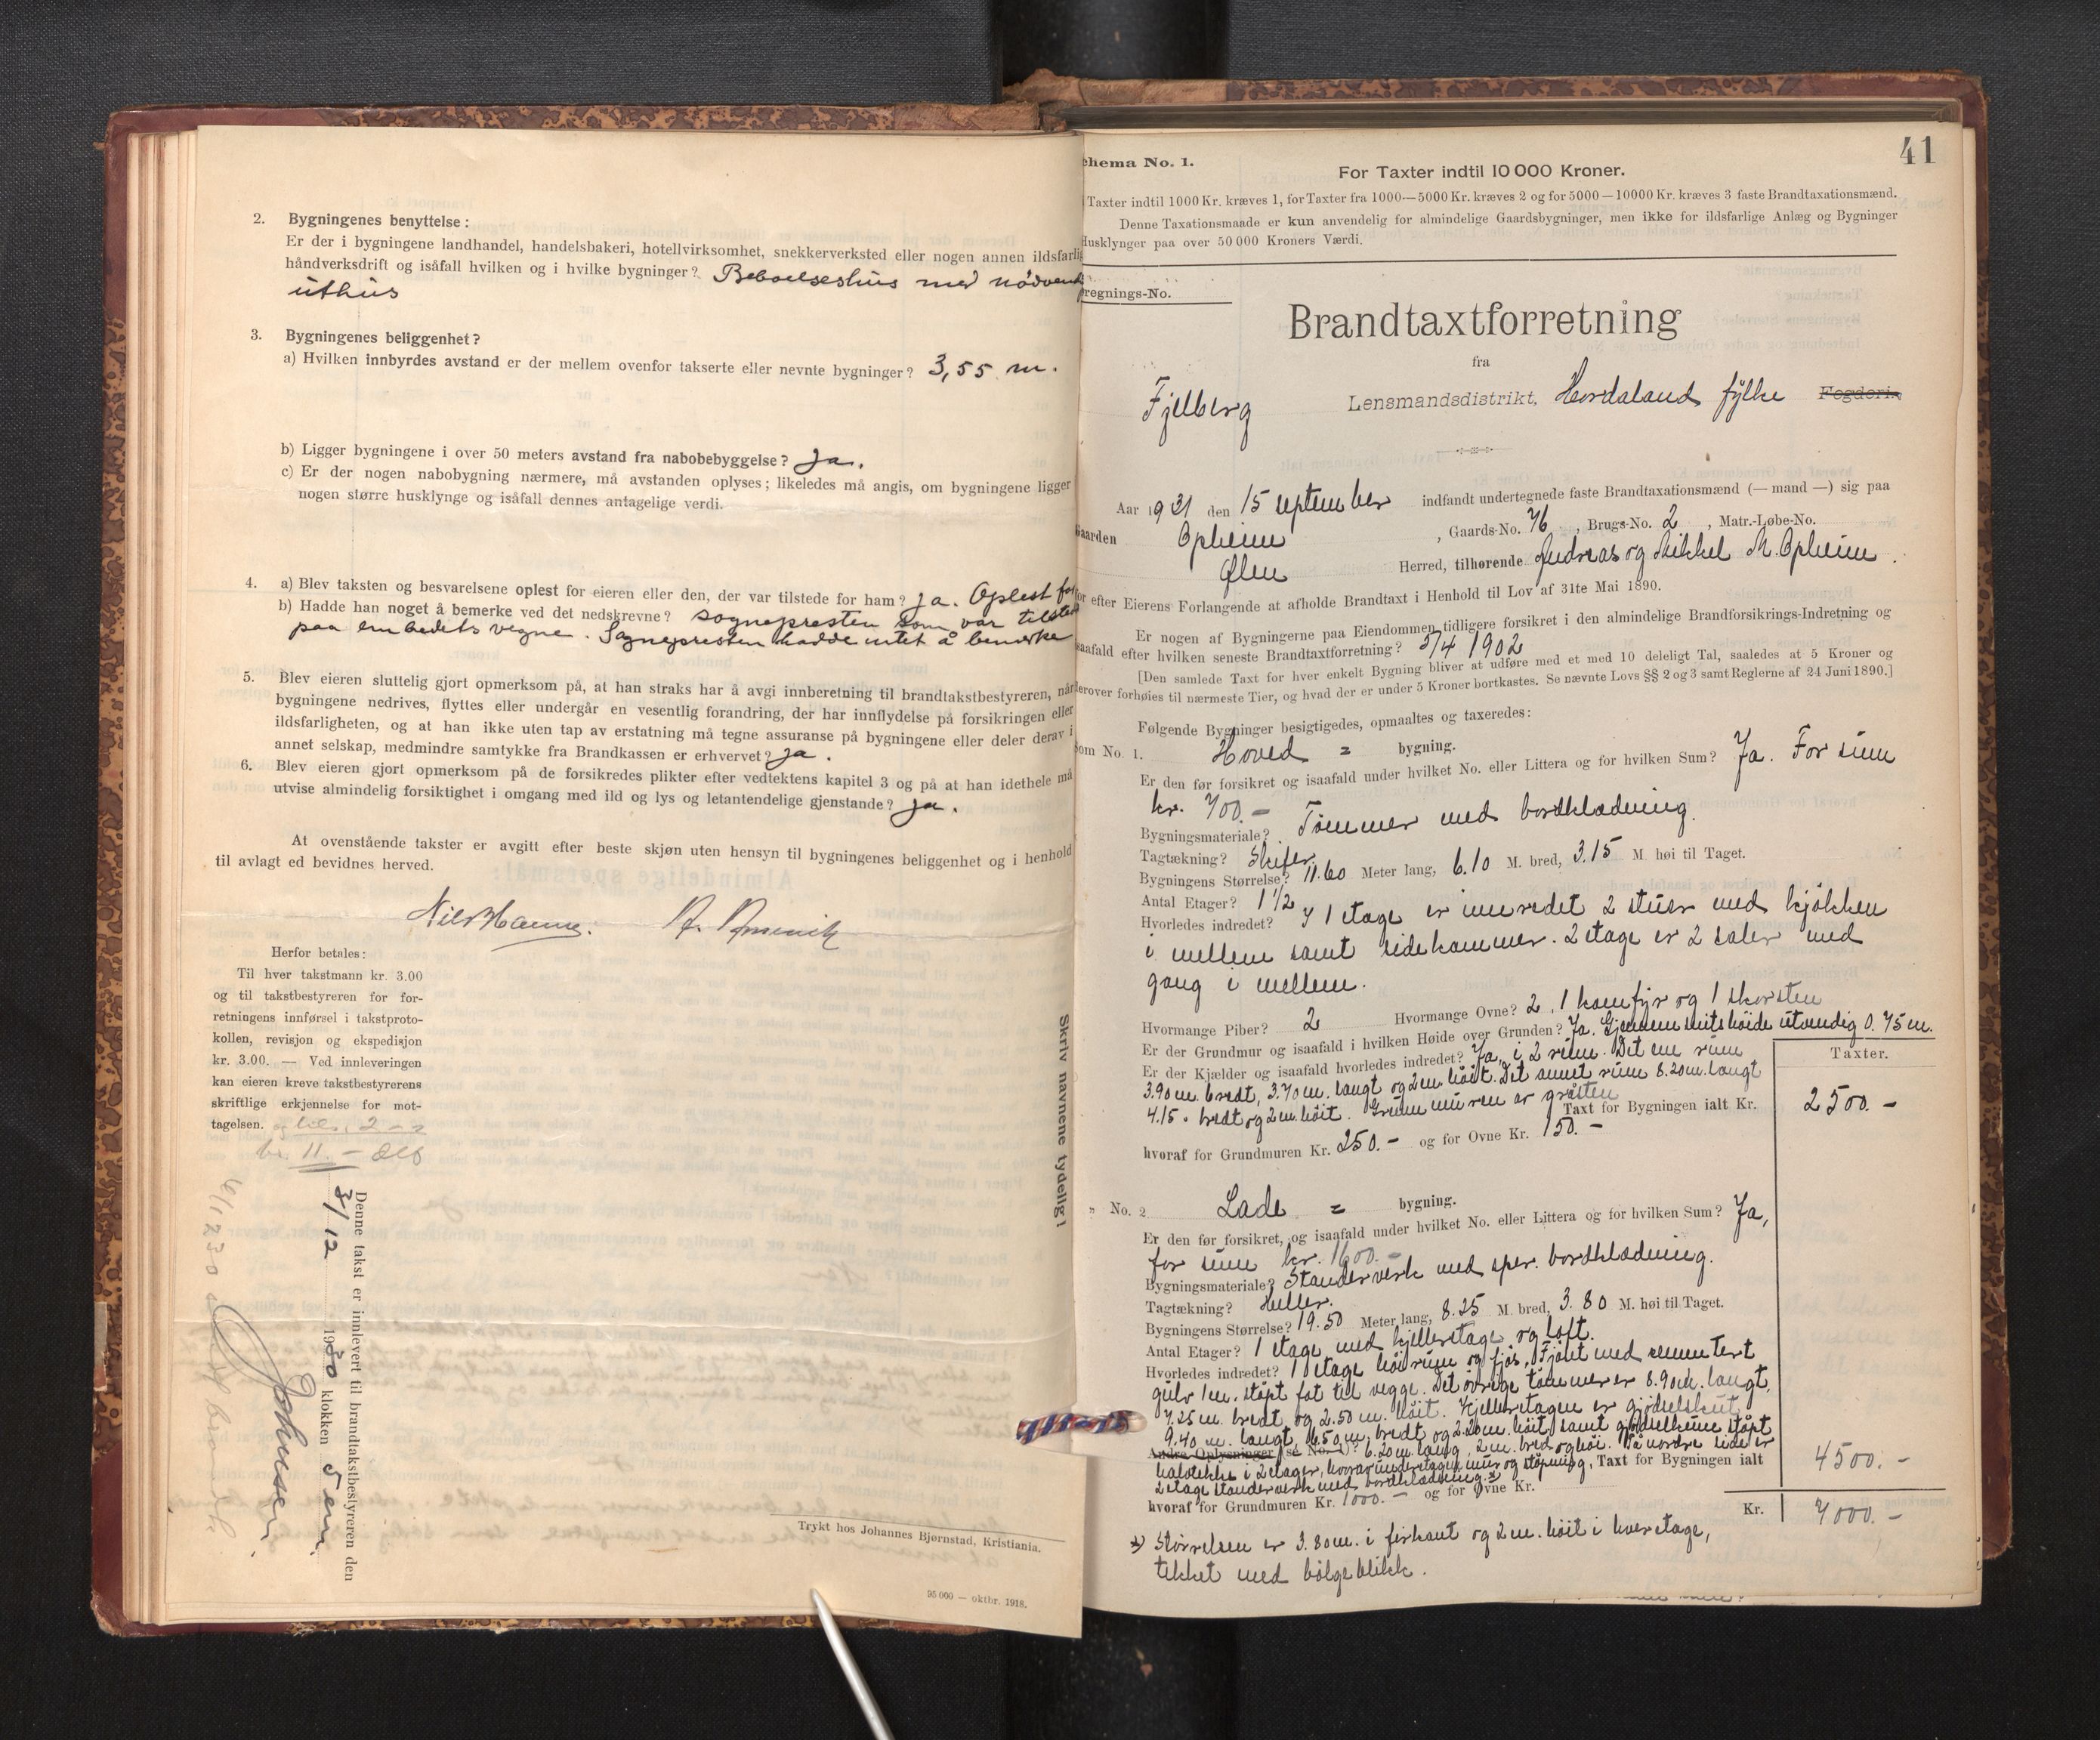 2. Bygningenes benyttelse:
Er der i bygningene landhandel, handelsbakeri, hotellvirksomhet, snekkerverksted eller nogen annen ildsfarlig
håndverksdrift og isåfall hvilken og i hvilke bygninger? Beboelseshus med nødvend
uthus
3. Bygningenes beliggenhet?
a) Hvilken innbyrdes avstand er der mellem ovenfor takserte eller nevnte bygninger? 3,55 m.
b) Ligger bygningene i over 50 meters avstand fra nabobebyggelse? Ja.
c) Er der nogen nabobygning nærmere, må avstanden oplyses; likeledes må angis, om bygningene ligger
nogen større husklynge og isåfall dennes antagelige verdi.
4. a) Blev taksten og besvarelsene oplest for eieren eller den, der var tilstede for ham? ja. Oplest for
b) Hadde han noget å bemerke ved det nedskrevne? sognepresten som var tilstede
paa embedets vegne. Sognepresten hadde intet å bemerke
5. Blev eieren sluttelig gjort opmerksom på, at han straks har å avgi innberetning til brandtakstbestyreren, når
bygningene nedrives, flyttes eller undergår en vesentlig forandring, der har innflydelse på forsikringen eller
ildsfarligheten, og at han ikke uten tap av erstatning må tegne assuranse på bygningene eller deler derav i
annet selskap, medmindre samtykke fra Brandkassen er erhvervet? ja.
6. Blev eieren gjort opmerksom på de forsikredes plikter efter vedtektens kapitel 3 og på at han idethele må
utvise almindelig forsiktighet i omgang med ild og lys og letantendelige gjenstande? ja.
At ovenstående takster er avgitt efter beste skjøn uten hensyn til bygningenes beliggenhet og i henhold
til avlagt ed bevidnes herved.
Herfor betales:
Til hver takstmann kr. 3.00
og til takstbestyreren for for-
retningens innførsel i takstproto-
kollen, revisjon og ekspedisjon
kr. 3.00. — Ved innleveringen
kan eieren kreve takstbestyrerens
skriftlige erkjennelse for mot-
tagelsen.
kr. 11.-
Denne takst er innlevert til brandtakstbestyreren den
3/12 1930 klokken 5 em.
Johnsen
Skriv navnene tydelig!
Trykt hos Johannes Bjørnstad, Kristiania.
95 000 — oktbr. 1918.
41
chema No. 1.
For Taxter indtil 10 000 Kroner.
Taxter indtil 1000 Kr. kræves 1, for Taxter fra 1000—5000 Kr. kræves 2 og for 5000—10000 Kr. kræves 3 faste Brandtaxationsmænd.
Denne Taxationsmaade er kun anvendelig for almindelige Gaardsbygninger, men ikke for ildsfarlige Anlæg og Bygninger
Husklynger paa over 50 000 Kroners Værdi.
regnings-No.
Brandtaxtforretning
fra
Fjelberg Lensmandsdistrikt, Hordaland fylke Fogderi.
Aar 1931 den 15 september indfandt undertegnede faste Brandtaxationsmænd (— mand —) sig paa
Gaarden Opheim, Gaards-No. 76, Brugs-No. 2, Matr.-Løbe-No.
Ølen Herred, tilhørende Andreas og Mikkel M. Opheim.
for efter Eierens Forlangende at afholde Brandtaxt i Henhold til Lov af 31te Mai 1890.
Er nogen af Bygningerne paa Eiendommen tidligere forsikret i den almindelige Brandforsikrings-Indretning og
isaafald efter hvilken seneste Brandtaxtforretning? 5/4 1902
[Den samlede Taxt for hver enkelt Bygning bliver at udføre med et med 10 deleligt Tal, saaledes at 5 Kroner og
derover forhøies til nærmeste Tier, og hvad der er under 5 Kroner bortkastes. Se nævnte Lovs §§ 2 og 3 samt Reglerne af 24 Juni 1890.]
Følgende Bygninger besigtigedes, opmaaltes og taxeredes:
Som No. 1. Hoved = bygning.
Er den før forsikret og isaafald under hvilket No. eller Littera og for hvilken Sum? Ja. For sum
kr. 700.-
Bygningsmateriale? Tømmer med bordklædning.
Tagtækning? Skifer
Bygningens Størrelse? 11.60 Meter lang, 6.10 M. bred, 3.15 M. høi til Taget.
Antal Etager? 1 1/2
Hvorledes indredet? I 1 etage er innredet 2 stuer med kjøkken
i mellem samt sidekammer. 2 etage er 2 saler med
gang i mellem.
Hvormange Piber? 2 Hvormange Ovne? 2, 1 komfyr og 1 skorsten
Er der Grundmur og isaafald i hvilken Høide over Grunden? Ja. Gjennemsnitshøide utvendig 0.75 m.
Er der Kjælder og isaafald hvorledes indredet? Ja, i 2 rum. Det ene rum
3.90 m. bredt, 3.70 m. langt og 2 m. høit. Det annet rum 8.20 m. langt
4.15. bredt og 2 m. høit. Grunnmuren er gråsten
Taxter.
Taxt for Bygningen ialt Kr. 2500.-
hvoraf for Grundmuren Kr. 250.- og for Ovne Kr. 150.-
" No. 2 Lade = bygning.
Er den før forsikret, og isaafald under hvilket No. eller Littera og for hvilken Sum? Ja,
for sum kr. 1600.-
Bygningsmateriale? Standerverk med sper. bordklædning.
Tagtækning? Heller.
Bygningens Størrelse? 19.50 Meter lang, 8.25 M. bred, 3.80 M. høi til Taget.
Antal Etager? 1 etage med kjelleretage og loft.
Hvorledes indredet? 1 etage høirum og fjøs. Fjøset med sementert
gulv 1 m. støpt fot til vegge. Det øvrige tømmer er 8.90 m. langt,
7.25 m. bredt og 2.50 m. høit. Kjelleretagen er gjødselskut
9.40 m. langt, 6.50 m. bredt og 2.20 m. høit, samt gjødselkum støpt
Andre Oplysninger (se No. 1)? 6.20 m. lang, 2 m. bred og høi. På nordre side er
halvtekke i 2 etager, hvorav underetagen mur og støpning,
2 etage standerverk med bordklædning.*
Taxt for Bygningen ialt 4500.-
hvoraf for Grundmuren Kr. 1000.- og for Ovne Kr.
Kr. 7000.-
*) Størrelsen er 3.80 m. i firkant og 2 m. høit i hver etage,
tekket med bølgeblikk.